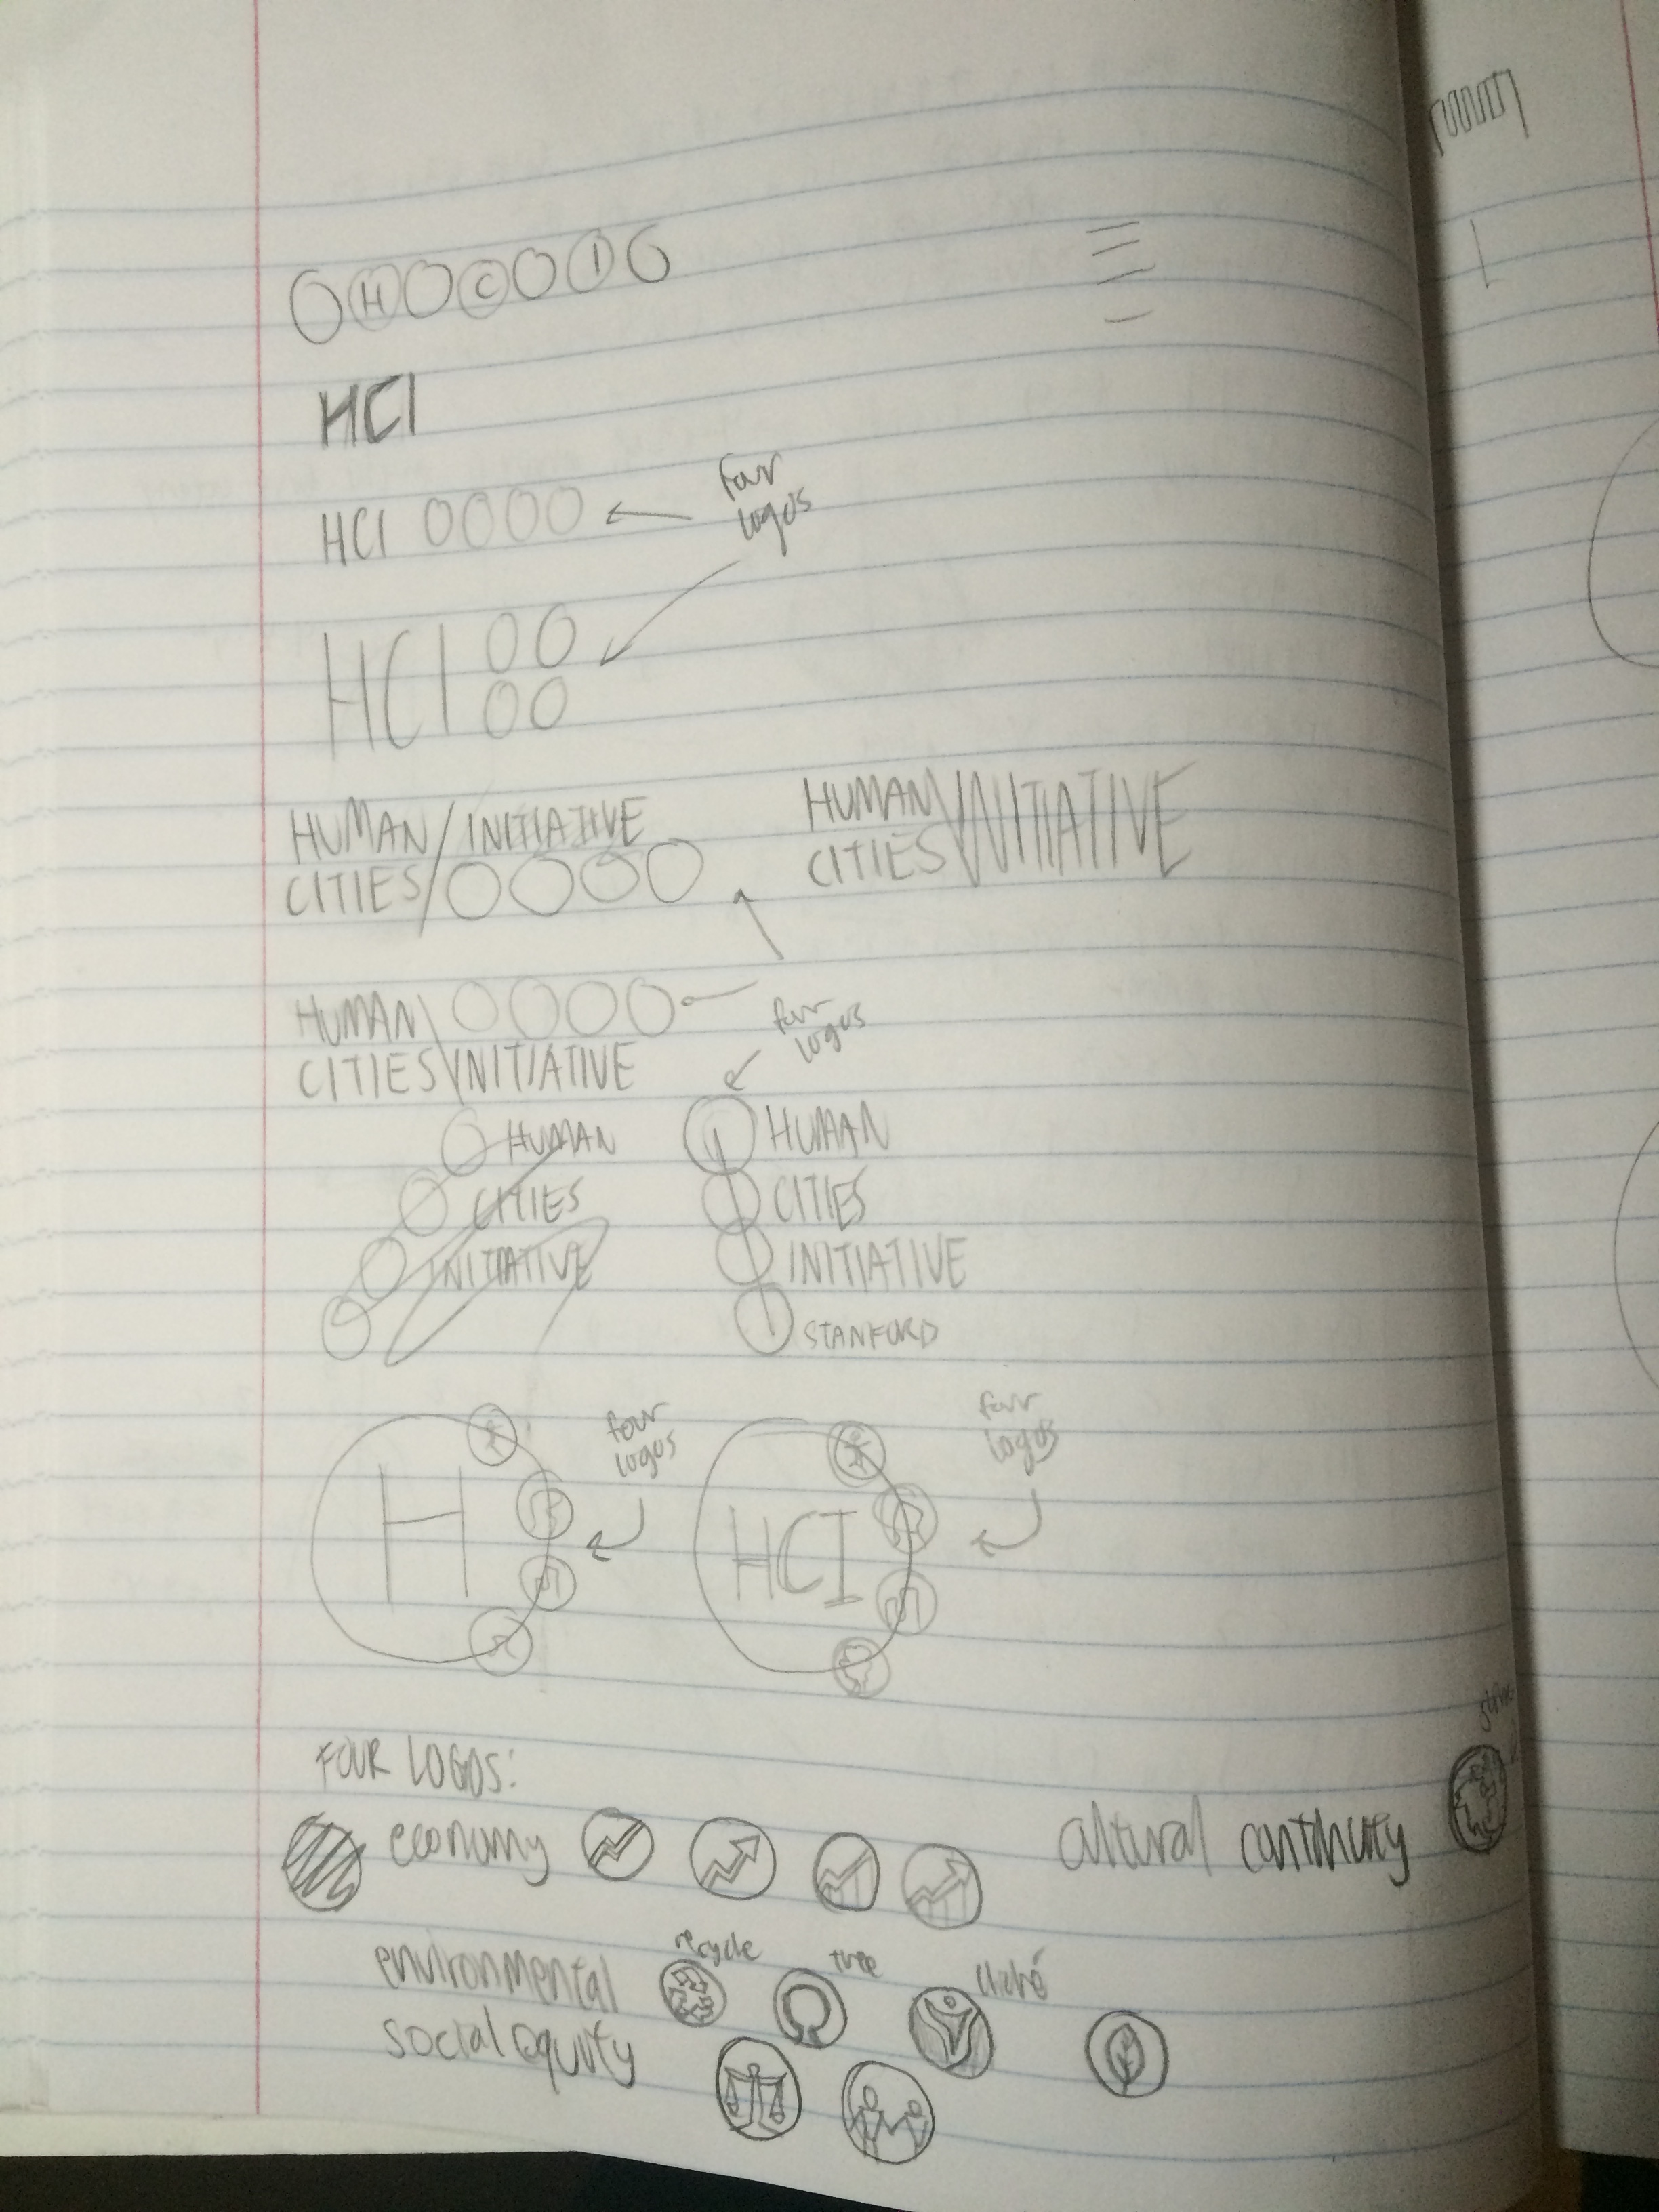 H C I
HCI
four
logos
HCI
HCI
HUMAN/INITIATIVE
CITIES/
HUMAN\INITIATIVE
CITIES
HUMAN\
CITIES\INITIATIVE
four
logos
HUMAN
CITIES
INITIATIVE
HUMAN
CITIES
INITIATIVE
STANFORD
four
logos
four
logos
H
HCI
FOUR LOGOS:
economy
cultural continuity
environmental
recycle
tree
cliché
social equity